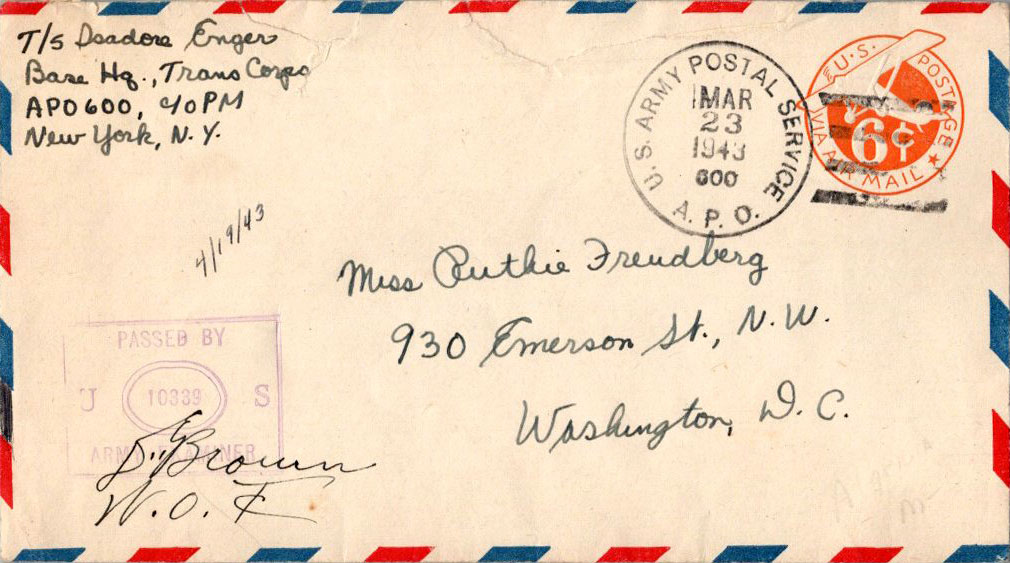 T/5 Isadore Enger
Base Hq., Trans Corps
APO 600, c/o PM
New York, N.Y.
U.S. ARMY POSTAL SERVICE
MAR
23
1943
600
A.P.O.
U.S. POSTAGE
6¢
VIA AIR MAIL
4/19/43
Miss Ruthie Freudberg
930 Emerson St., N.W.
Washington, D.C.
PASSED BY
U 10339 S
ARMY EXAMINER
Brown
W.O.